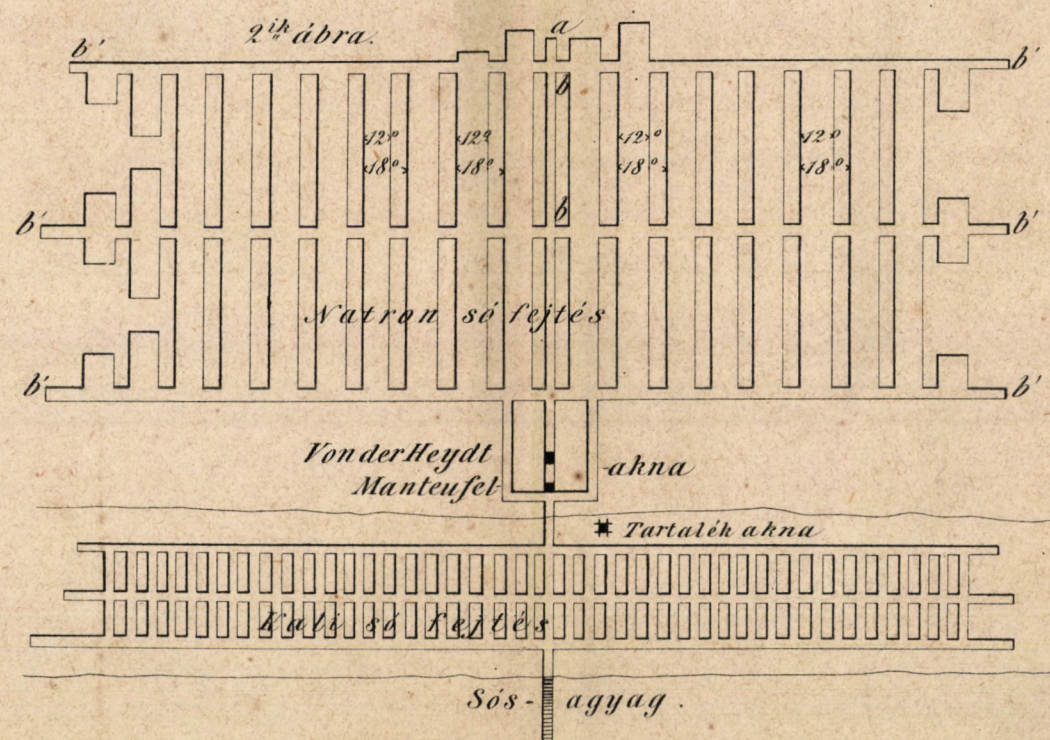 2ik ábra.
a
b' b'
b
12° 12° 12° 12°
18° 18° 18° 18°
b' b b'
Natron só fejtés
b' b'
Von der Heydt
Manteufel -akna
Tartalék akna
Kali só fejtés
Sós- agyag.